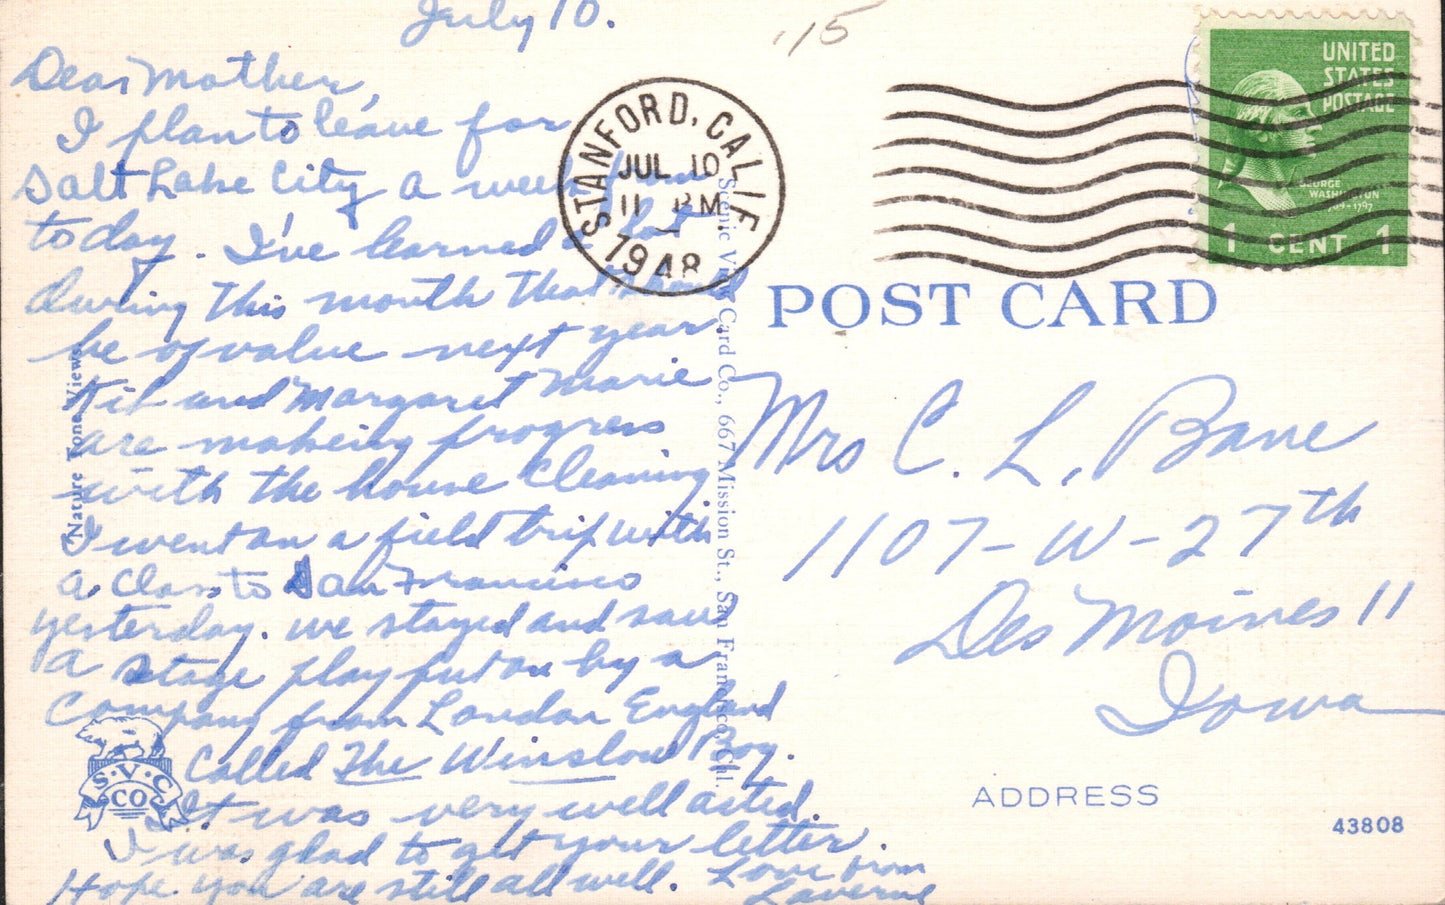 July 10.
Dear Mother,
I plan to leave for
Salt Lake City a week from
today. I've learned a lot
during this month that should
be of value next year.
Kit and Margaret Marie
are makeing progress
with the house cleaning.
I went on a field trip with
a class to San Francisco
yesterday. We stayed and saw
a stage play put on by a
Company from London England
Called The Winslow Boy.
It was very well acted.
I was glad to get your letter.
Hope you are still all well. Love from
Laverne
Nature Tone Views
S.V.C
CO
Scenic View Card Co., 667 Mission St., San Francisco, Cal.
15
STANFORD, CALIF
JUL 10
11 PM
1948
UNITED
STATES
POSTAGE
GEORGE
WASHINGTON
1789-1797
1 CENT 1
POST CARD
Mrs C. L. Bane
1107-W-27th
Des Moines 11
Iowa
ADDRESS
43808